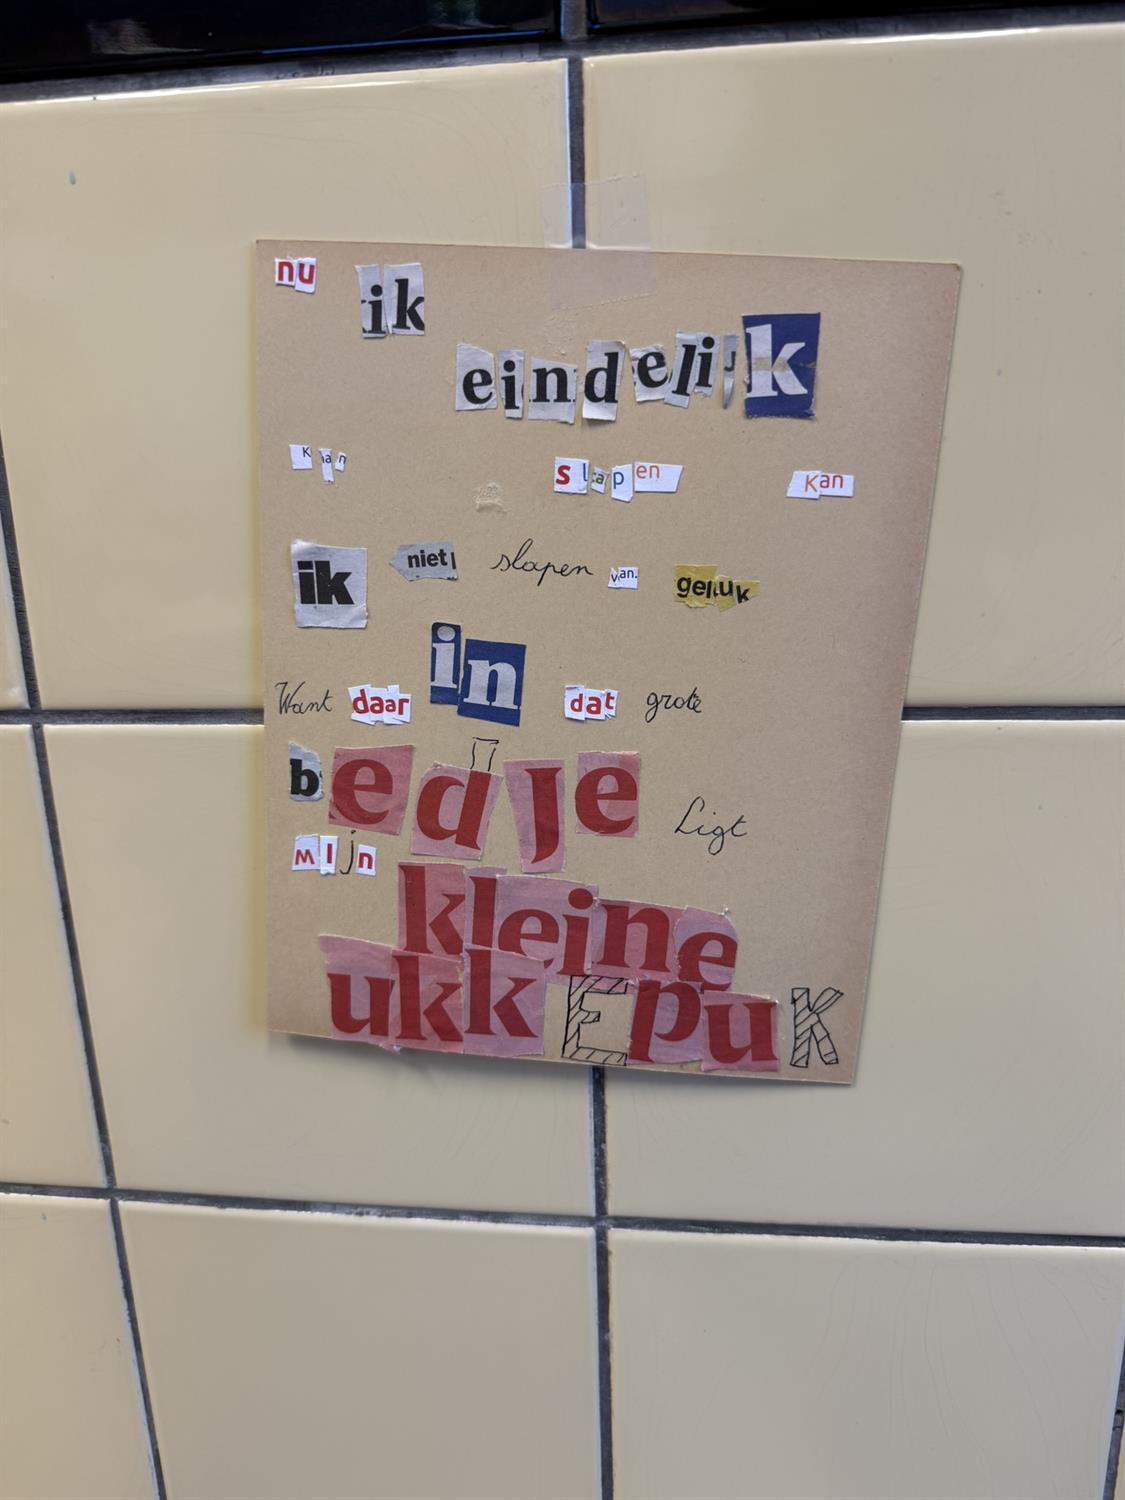 nu ik
eindelijk
Kaan slapen Kan
ik niet slapen van. geluk
Want daar in dat grote
bedje Ligt
mIjn
kleine
ukkEpuK